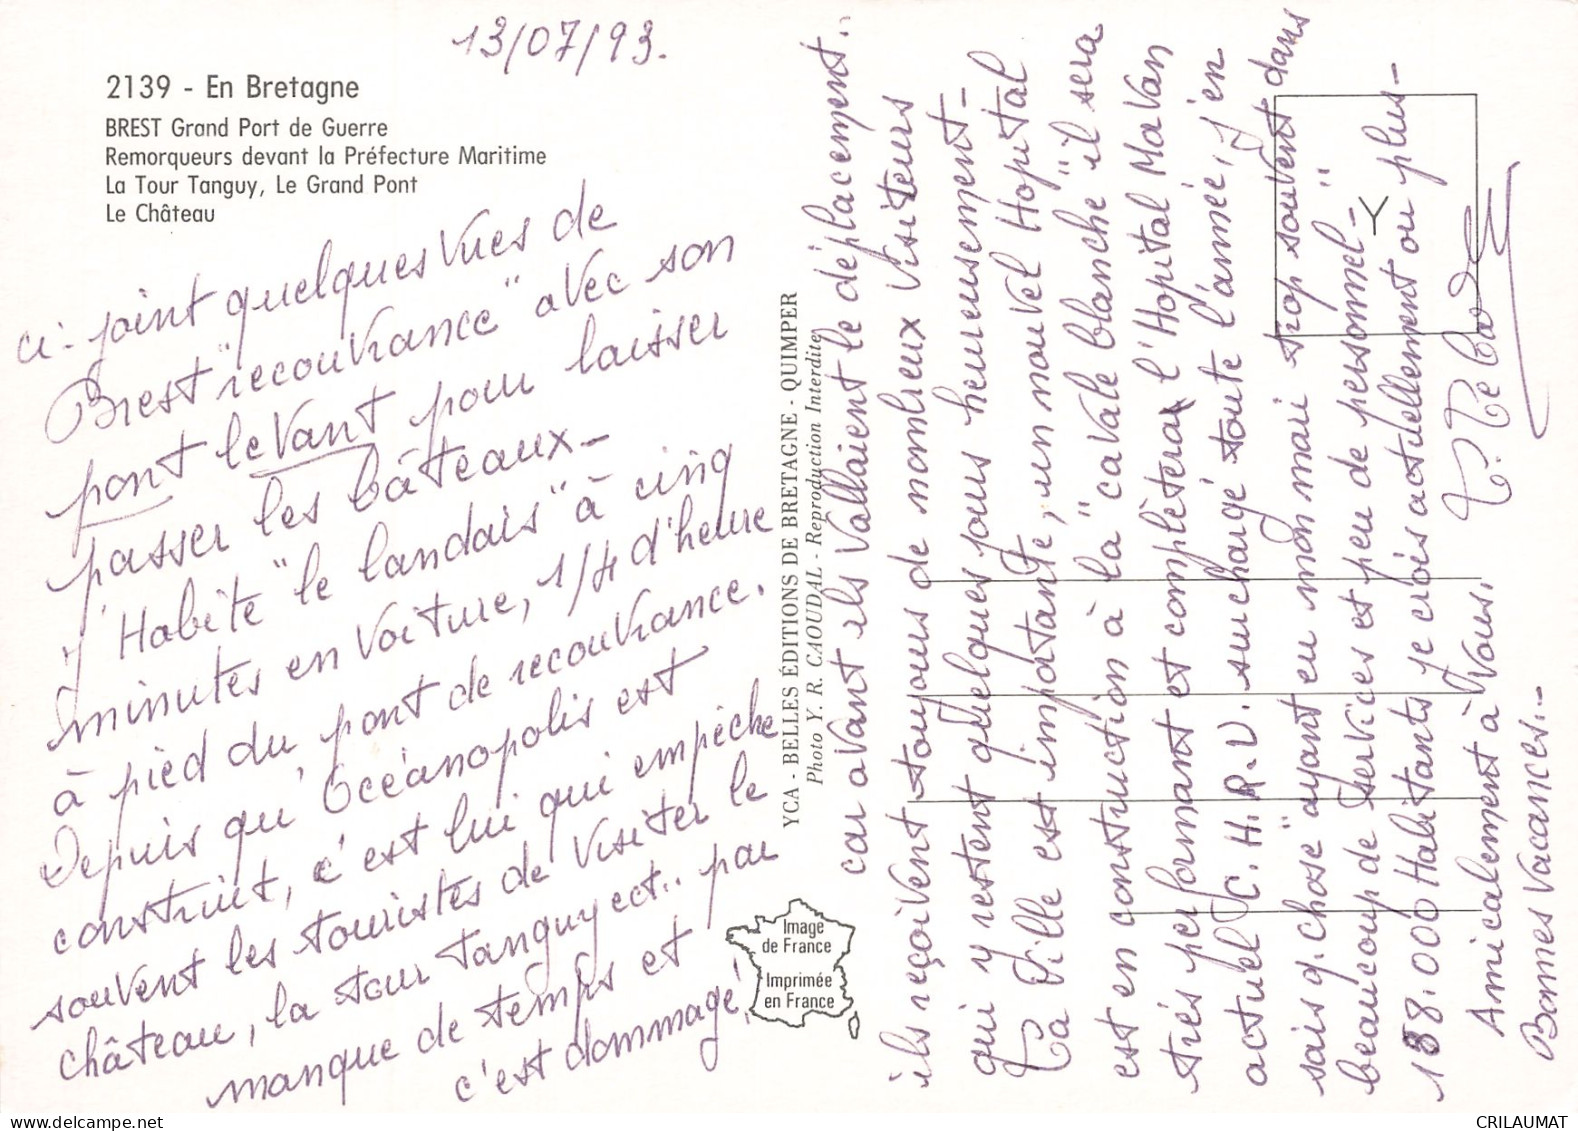 13/07/93.
2139 - En Bretagne
BREST Grand Port de Guerre
Remorqueurs devant la Préfecture Maritime
La Tour Tanguy, Le Grand Pont
Le Château
ci-joint quelques vues de
Brest "recouvrance" avec son
pont levant pour laisser
passer les bâteaux_
j'Habite "le landais" à cinq
minutes en voiture, 1/4 d'heure
à pied du pont de recouvrance.
Depuis qu'Océanopolis est
construit, c'est lui qui empêche
souvent les touristes de visiter le
château, la tour tanguy ect.. par
manque de temps et
c'est dommage,
YCA - BELLES ÉDITIONS DE BRETAGNE - QUIMPER
Photo Y. R. CAOUDAL - Reproduction Interdite
Image
de France
Imprimée
en France
car avant ils vallaient le déplacement..
ils reçoivent toujours de nombreux visiteurs
qui y restent quelques jours heureusement_
La Ville est importante, un nouvel Hopital
est en construction à la "cavale blanche" il sera
très performant et complètera l'Hopital Morvan
actuel C.H.R.U. surchargé toute l'année, j'en
sais q. chose" ayant eu mon mari trop souvent dans
beaucoup de services et peu de personnel_"
188.000 Habitants je crois actuellement ou plus_
Amicalement à Vous.
Bonnes Vacances._
Y
CRILAUMAT